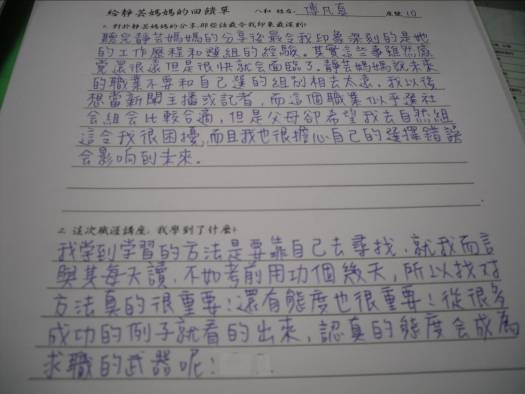 給靜芸媽媽的回饋單 八和 姓名: 傅凡真 座號:10
1. 對於靜芸媽媽的分享,那些話最令我印象最深刻?
聽完靜芸媽媽的分享後最令我印象深刻的是她
的工作歷程和選組的經驗。其實這些事雖然感
覺還很遠但是很快就會面臨了。靜芸媽媽說未來
的職業不要和自己選的組別相去太遠。我以後
想當新聞主播或記者,而這個職業似乎選社
會組會比較合適,但是父母卻希望我去自然組
這令我很困擾,而且我也很擔心自己的選擇錯誤
會影响到未來。
2. 這次職涯講座,我學到了什麼?
我學到學習的方法是要靠自己去尋找,就我而言
與其每天讀,不如考前用功個幾天,所以找對
方法真的很重要!還有態度也很重要!從很多
成功的例子就看的出來,認真的態度會成為
求職的武器呢!